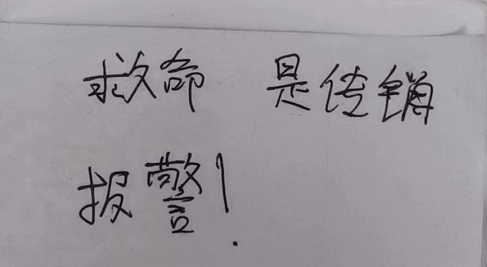 救命 是传销
报警!